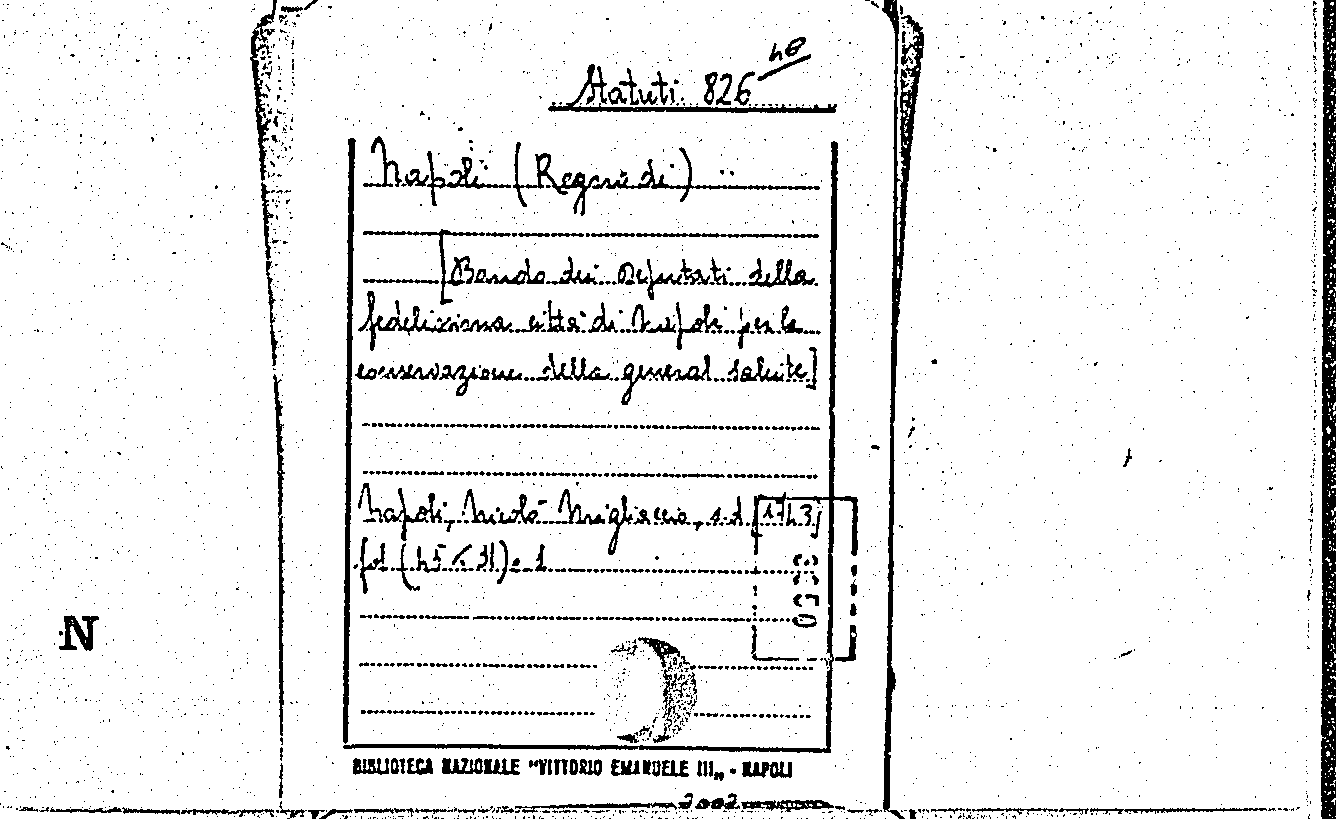 Statuti 826 40
Napoli (Regno di)
[Bando dei Deputati della
fedelissima città di Napoli per la
conservazione della general salute]
Napoli, Nicolò Migliaccio, s.d. [1743]
fol (45 × 31) . 1
N
BIBLIOTECA NAZIONALE "VITTORIO EMANUELE III„ - NAPOLI